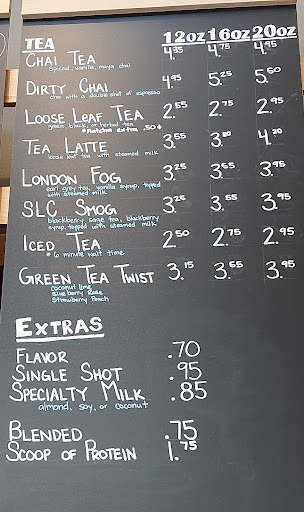 TEA 12oz 16oz 20oz
CHAI TEA 4.35 4.75 4.95
Spiced, vanilla, maya chai
DIRTY CHAI 4.95 5.25 5.60
chai with a double shot of espresso
LOOSE LEAF TEA 2.55 2.75 2.95
green, black, or herbal tea
*Matcha extra .50¢
TEA LATTE 3.55 3.80 4.20
loose leaf tea with steamed milk
LONDON FOG 3.25 3.55 3.95
earl grey tea, vanilla syrup, topped
with steamed milk
SLC SMOG 3.25 3.55 3.95
blackberry sage tea, blackberry
syrup, topped with steamed milk
ICED TEA 2.50 2.75 2.95
*6 minute wait time
GREEN TEA TWIST 3.15 3.55 3.95
coconut lime
Blueberry Rose
Strawberry Peach
EXTRAS
FLAVOR .70
SINGLE SHOT .95
SPECIALTY MILK .85
almond, soy, or coconut
BLENDED .75
SCOOP OF PROTEIN 1.75